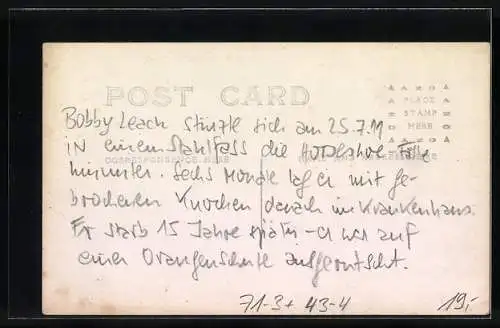 POST CARD
AZOA
PLACE
STAMP
HERE
Bobby Leach stürzte sich am 25.7.11
in einem Stahlfass die Horseshoe Fälle
CORRESPONDENCE HERE
hinunter. Sechs Monate lag er mit ge-
brochenen Knochen danach im Krankenhaus.
Er starb 15 Jahre später - er war auf
einer Orangenschale ausgerutscht.
71-3+ 43-4
19,-